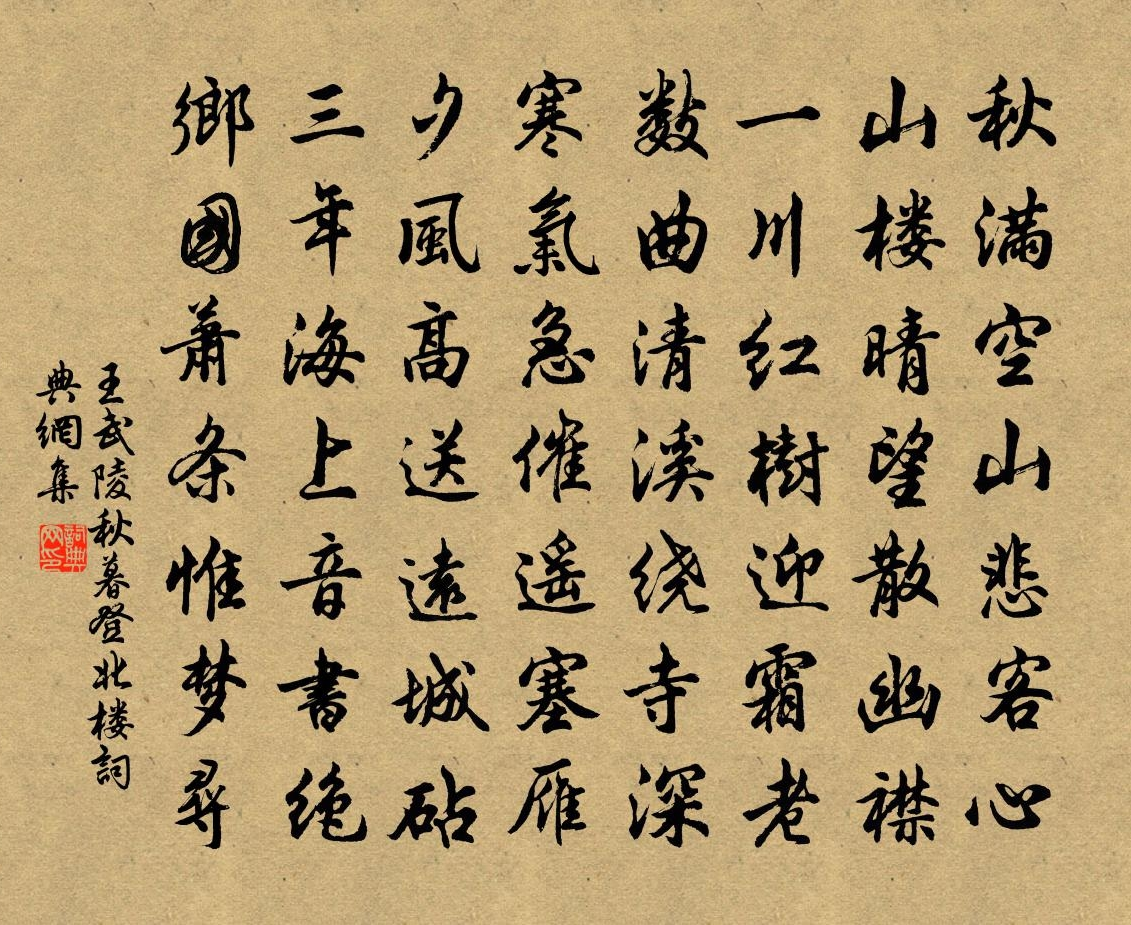 秋满空山悲客心
山楼晴望散幽襟
一川红树迎霜老
数曲清溪绕寺深
寒氣急催遥塞雁
夕風高送遠城砧
三年海上音書绝
鄉國萧条惟梦尋
王武陵秋暮登北楼詞
典網集
詞典
网印